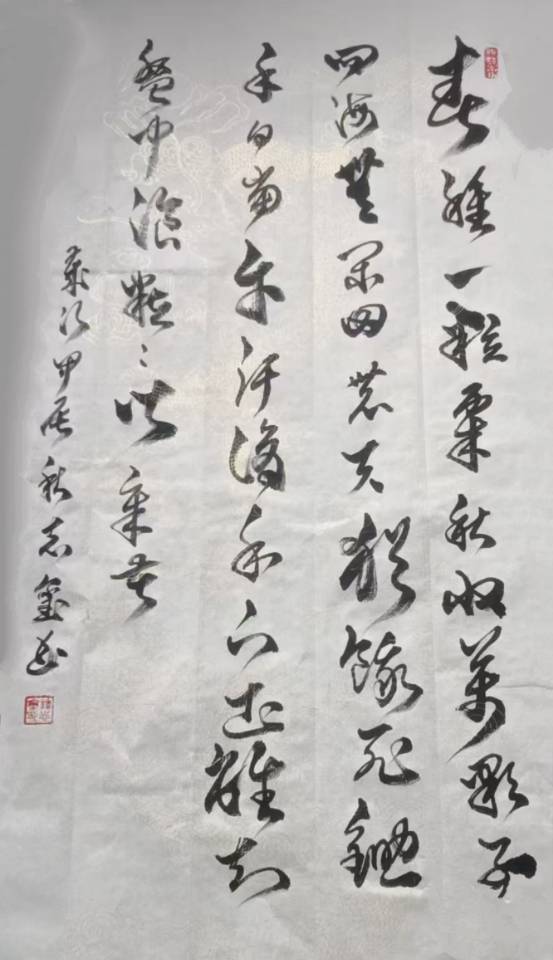 春種一粒粟秋收萬顆子
四海無閑田農夫猶餓死鋤
禾日當午汗滴禾下土誰知
盤中湌粒〻皆辛苦
歲次甲辰秋志璽書